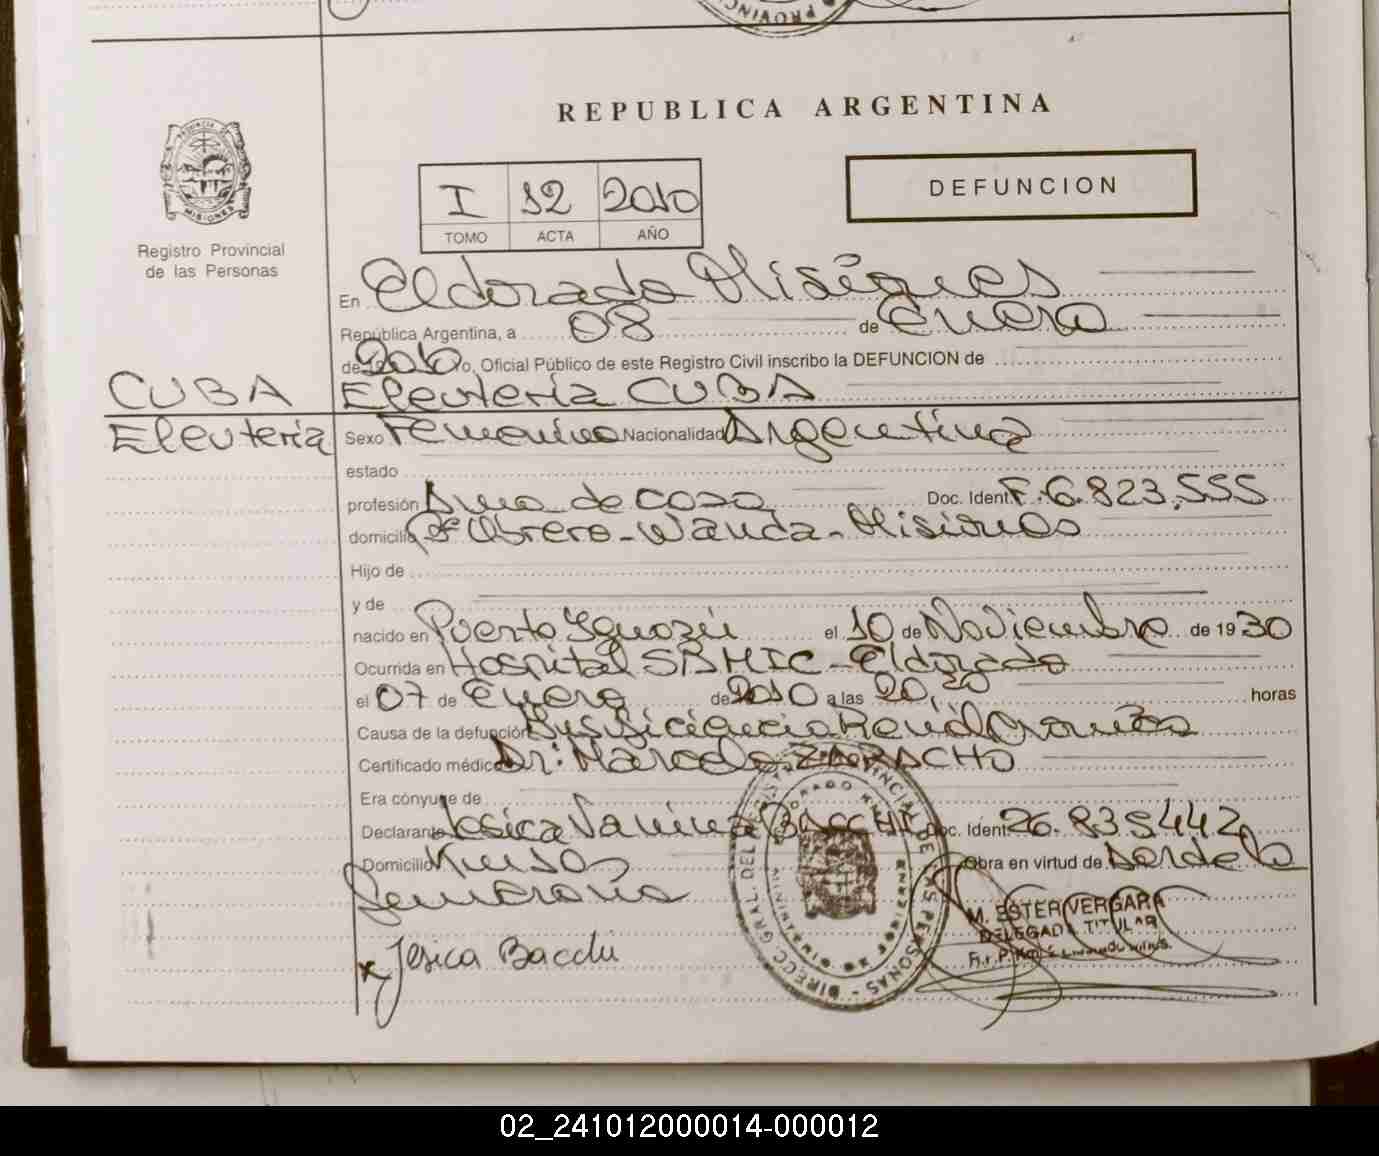 REPUBLICA ARGENTINA
PROVINCIA DE
MISIONES
Registro Provincial
de las Personas
I 12 2010
TOMO ACTA AÑO
DEFUNCION
En Eldorado Misiones
República Argentina, a 08 de Enero
de 2010 Yo, Oficial Público de este Registro Civil inscribo la DEFUNCION de
CUBA Eleuteria CUBA
Eleuteria Sexo Femenino Nacionalidad Argentina
estado
profesión Ama de casa Doc. Ident. F. 6.823.555
domicilio Bº Obrero - Wanda - Misiones
Hijo de
y de
nacido en Puerto Iguazú el 10 de Noviembre de 1930
Ocurrida en Hospital SAMIC - Eldorado
el 07 de Enero de 2010 a las 20,20 horas
Causa de la defunción Insuficiencia Renal Cronica
Certificado médico Dr: Marcelo ZARACHO
Era cónyuge de
Declarante Jesica Vanina BACCHI Doc. Ident. 26.835.442
Domicilio Obra en virtud de
Jesica Bacchi
M. ESTER VERGARA
DELEGADA TITULAR
02_241012000014-000012